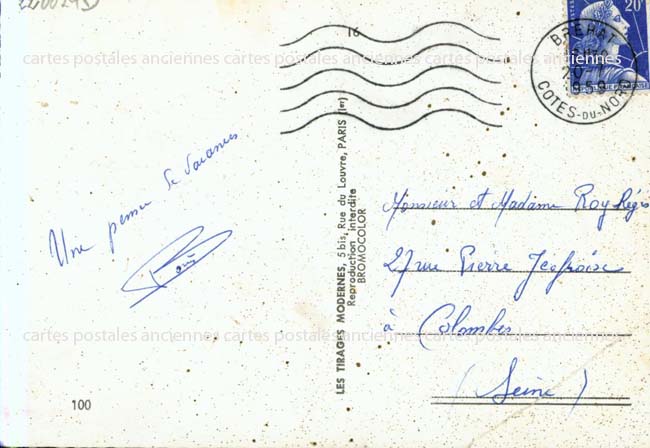 16
BREHAT
1959
COTES-DU-NORD
20F
cartes postales anciennes cartes postales anciennes cartes postales anciennes
Une pensée de vacances
LES TIRAGES MODERNES, 5 bis, Rue du Louvre, PARIS (Ier)
Reproduction interdite
BROMOCOLOR
Monsieur et Madame Roy Régis
27 rue Pierre
à Colombes
(Seine)
cartes postales anciennes cartes postales anciennes cartes postales anciennes
100